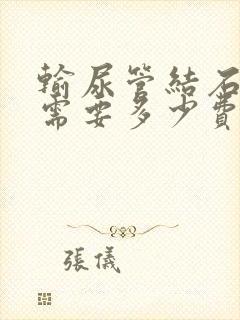 輸尿管結石
需要多少費
張儀